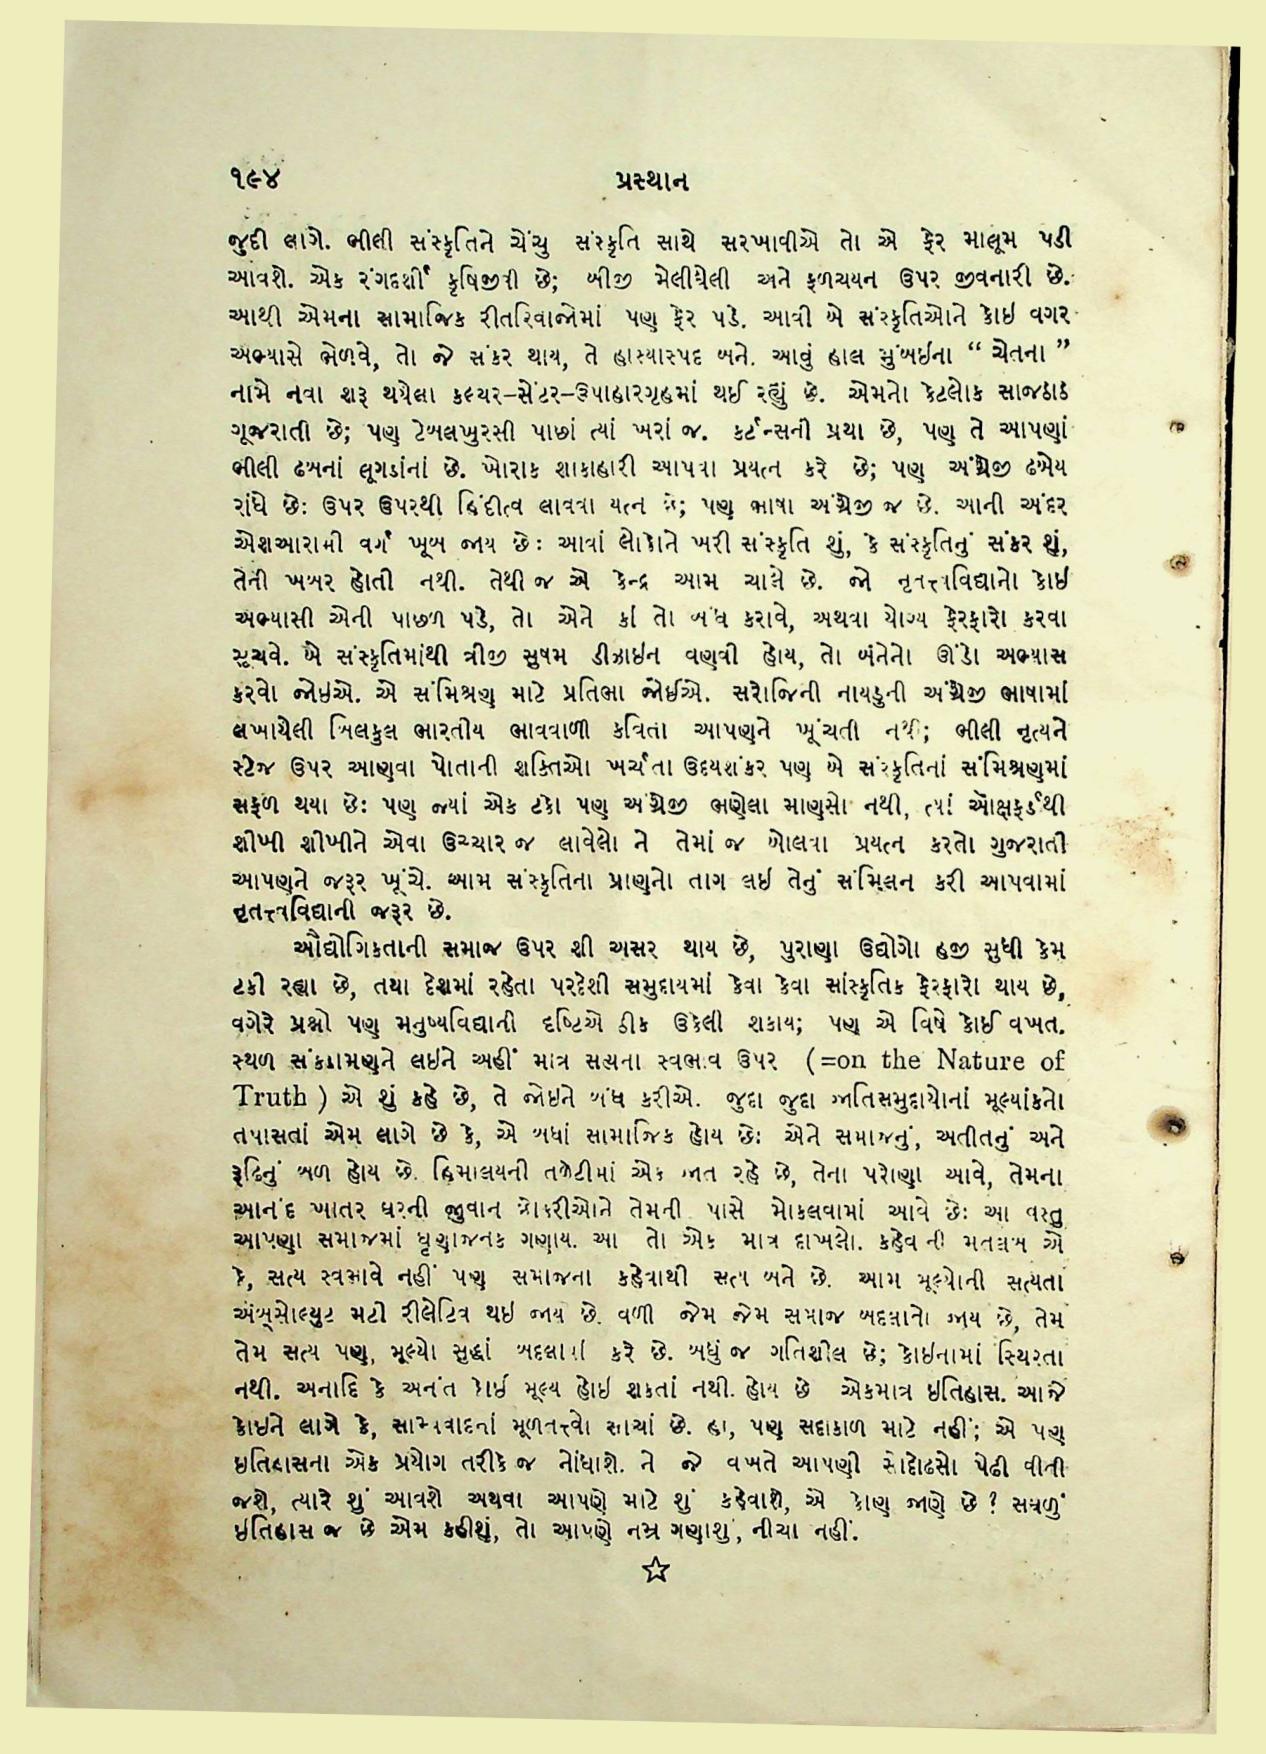 ૧૯૪ પ્રસ્થાન
જુદી લાગે. ભીલી સંસ્કૃતિને ચેંચુ સંસ્કૃતિ સાથે સરખાવીએ તો એ ફેર માલૂમ પડી
આવશે. એક રંગદર્શી કૃષિજીવી છે; બીજી મેલીઘેલી અને ફળચયન ઉપર જીવનારી છે.
આથી એમના સામાજિક રીતરિવાજોમાં પણ ફેર પડે. આવી બે સંસ્કૃતિઓને કોઇ વગર
અભ્યાસે ભેળવે, તો જે સંકર થાય, તે હાસ્યાસ્પદ બને. આવું હાલ મુંબઇના “ ચેતના ”
નામે નવા શરૂ થયેલા કલ્ચર–સેંટર–રૂપાહારગૃહમાં થઈ રહ્યું છે. એમનો કેટલોક સાજઠાઠ
ગૂજરાતી છે; પણ ટેબલખુરસી પાછાં ત્યાં ખરાં જ. કર્ટન્સની પ્રથા છે, પણ તે આપણાં
ભીલી ઢબનાં લૂગડાંનાં છે. ખોરાક શાકાહારી આપવા પ્રયત્ન કરે છે; પણ અંગ્રેજી ઢબેય
રાંધે છેઃ ઉપર ઉપરથી હિંદીત્વ લાવવા યત્ન છે; પણ ભાષા અંગ્રેજી જ છે. આની અંદર
એશઆરામી વર્ગ ખૂબ જાય છેઃ આવાં લોકોને ખરી સંસ્કૃતિ શું, કે સંસ્કૃતિનું સંકર શું,
તેની ખબર હોતી નથી. તેથી જ એ કેન્દ્ર આમ ચાલે છે. જો નૃતત્ત્વવિદ્યાનો કોઇ
અભ્યાસી એની પાછળ પડે, તો એને કાં તો બંધ કરાવે, અથવા યોગ્ય ફેરફારો કરવા
સૂચવે. બે સંસ્કૃતિમાંથી ત્રીજી સુષમ ડીઝાઇન વણવી હોય, તો બંનેનો ઊંડો અભ્યાસ
કરવો જોઇએ. એ સંમિશ્રણ માટે પ્રતિભા જોઈએ. સરોજિની નાયડુની અંગ્રેજી ભાષામાં
લખાયેલી બિલકુલ ભારતીય ભાવવાળી કવિતા આપણને ખૂંચતી નથી; ભીલી નૃત્યને
સ્ટેજ ઉપર આણવા પોતાની શક્તિઓ ખર્ચતા ઉદયશંકર પણ બે સંસ્કૃતિનાં સંમિશ્રણમાં
સફળ થયા છેઃ પણ જ્યાં એક ટકો પણ અંગ્રેજી ભણેલા માણસો નથી, ત્યાં ઑક્ષફર્ડથી
શીખી શીખીને એવા ઉચ્ચાર જ લાવેલો ને તેમાં જ બોલવા પ્રયત્ન કરતો ગુજરાતી
આપણને જરૂર ખૂંચે. આમ સંસ્કૃતિના પ્રાણનો તાગ લઇ તેનું સંમિલન કરી આપવામાં
નૃતત્ત્વવિદ્યાની જરૂર છે.
ઔદ્યોગિકતાની સમાજ ઉપર શી અસર થાય છે, પુરાણા ઉદ્યોગો હજી સુધી કેમ
ટકી રહ્યા છે, તથા દેશમાં રહેતા પરદેશી સમુદાયમાં કેવા કેવા સાંસ્કૃતિક ફેરફારો થાય છે,
વગેરે પ્રશ્નો પણ મનુષ્યવિદ્યાની દૃષ્ટિએ ઠીક ઉકેલી શકાય; પણ એ વિષે કોઈ વખત.
સ્થળ સંકડામણને લઇને અહીં માત્ર સત્યના સ્વભાવ ઉપર (=on the Nature of
Truth ) એ શું કહે છે, તે જોઇને બંધ કરીએ. જુદા જુદા જાતિસમુદાયોનાં મૂલ્યાંકનો
તપાસતાં એમ લાગે છે કે, એ બધાં સામાજિક હોય છેઃ એને સમાજનું, અતીતનું અને
રૂઢિનું બળ હોય છે. હિમાલયની તળેટીમાં એક જાત રહે છે, તેના પરોણા આવે, તેમના
આનંદ ખાતર ઘરની જુવાન છોકરીઓને તેમની પાસે મોકલવામાં આવે છેઃ આ વસ્તુ
આપણા સમાજમાં ઘૃણાજનક ગણાય. આ તો એક માત્ર દાખલો. કહેવાની મતલબ એ
કે, સત્ય સ્વભાવે નહીં પણ સમાજના કહેવાથી સત્ય બને છે. આમ મૂલ્યોની સત્યતા
એબ્સોલ્યુટ મટી રીલેટિવ થઇ જાય છે. વળી જેમ જેમ સમાજ બદલાતો જાય છે, તેમ
તેમ સત્ય પણ, મૂલ્યો સુદ્ધાં બદલાયાં કરે છે. બધું જ ગતિશીલ છે; કોઇનામાં સ્થિરતા
નથી. અનાદિ કે અનંત કોઇ મૂલ્ય હોઇ શકતાં નથી. હોય છે એકમાત્ર ઇતિહાસ. આજે
કોઇને લાગે કે, સામ્યવાદનાં મૂળતત્ત્વો સાચાં છે. હા, પણ સદાકાળ માટે નહીં; એ પણ
ઇતિહાસના એક પ્રયોગ તરીકે જ નોંધાશે. ને જે વખતે આપણી સોદોઢસો પેઢી વીતી
જશે, ત્યારે શું આવશે અથવા આપણે માટે શું કહેવાશે, એ કોણ જાણે છે ? સઘળું
ઇતિહાસ જ છે એમ કહીશું, તો આપણે નમ્ર ગણાશું, નીચા નહીં.